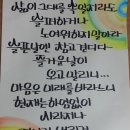 삶이 그대를 속일지라도
슬퍼하거나
노여워하지 말아라
슬픈 날엔 참고 견디라
즐거운 날이
오고야 말리니
마음은 미래를 바라느니
현재는 한없이